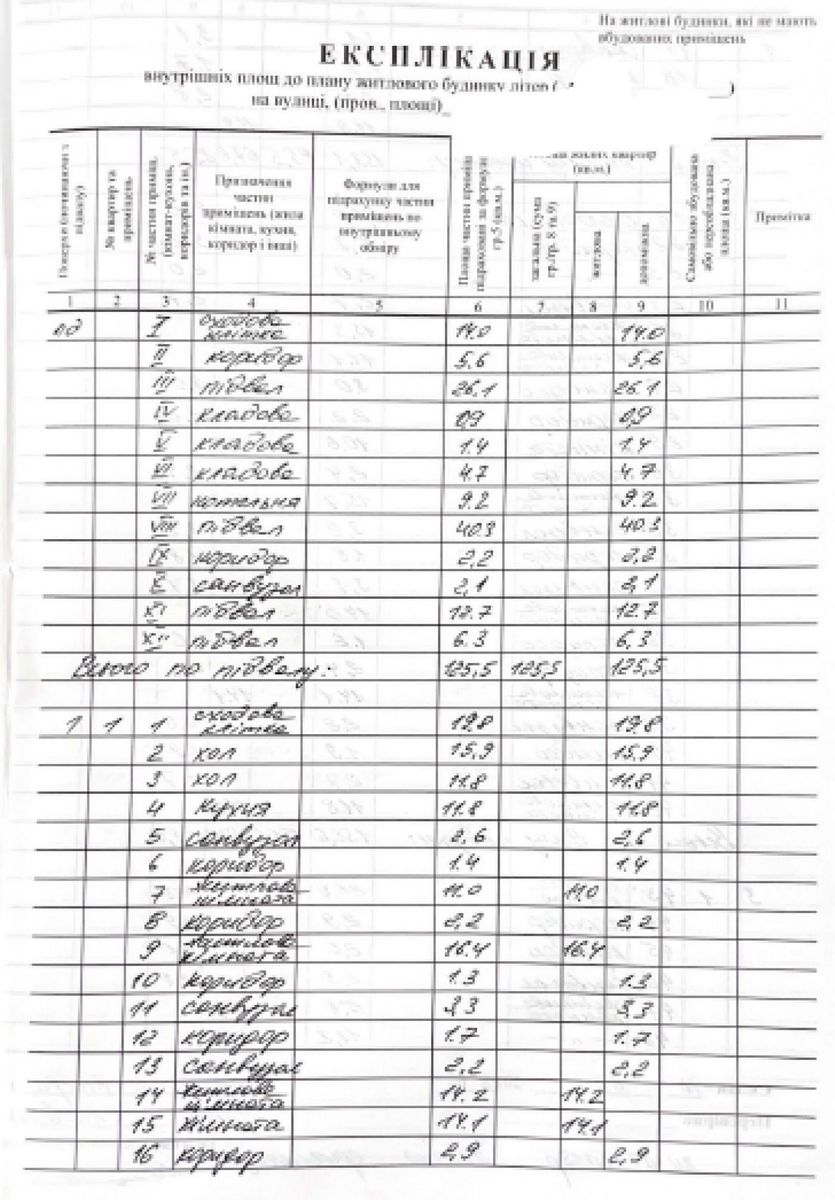 На житлові будинки, які не мають
вбудованих приміщень
ЕКСПЛІКАЦІЯ
внутрішніх площ до плану житлового будинку літер (
)
на вулиці, (пров., площі)_
Поверхи (починаючи з підвалу)
№ квартир та приміщень
№ частин приміщ. (кімнат-кухонь, коридорів та ін.)
Призначення
частин
приміщень (жила
кімната, кухня,
коридор і інші)
Формули для
підрахунку частин
приміщень по
внутрішньому
обміру
Площа частин приміщ. підраховані за формулою гр.5 (кв.м.)
жилих квартир
(кв.м.)
загальна (сума гр./гр. 8 та 9)
житлова
допоміжна
Самовільно збудована або переобладнана площа (кв.м.)
Примітка
1 2 3 4 5 6 7 8 9 10 11
пд I сходова клітка 14.0 14.0
II коридор 5,6 5,6
III підвал 26.1 26.1
IV кладова 0,9 0,9
V кладова 1.4 1.4
VI кладова 4.7 4.7
VII котельня 9.2 9.2
VIII підвал 40.3 40.3
IX коридор 2,2 2,2
X санвузол 2,1 2,1
XI підвал 12.7 12.7
XII підвал 6.3 6,3
Всього по підвалу: 125,5 125,5 125,5
1 1 1 сходова клітка 19.8 19.8
2 хол 15,9 15,9
3 хол 11.8 11.8
4 кухня 11.8 11.8
5 санвузол 2,6 2,6
6 коридор 1.4 1.4
7 житлова кімната 11.0 11.0
8 коридор 2,2 2,2
9 житлова кімната 16.4 16.4
10 коридор 1.3 1.3
11 санвузол 3,3 3,3
12 коридор 1.7 1.7
13 санвузол 2,2 2,2
14 житлова кімната 14.2 14.2
15 кімната 14.1 14.1
16 коридор 2,9 2,9